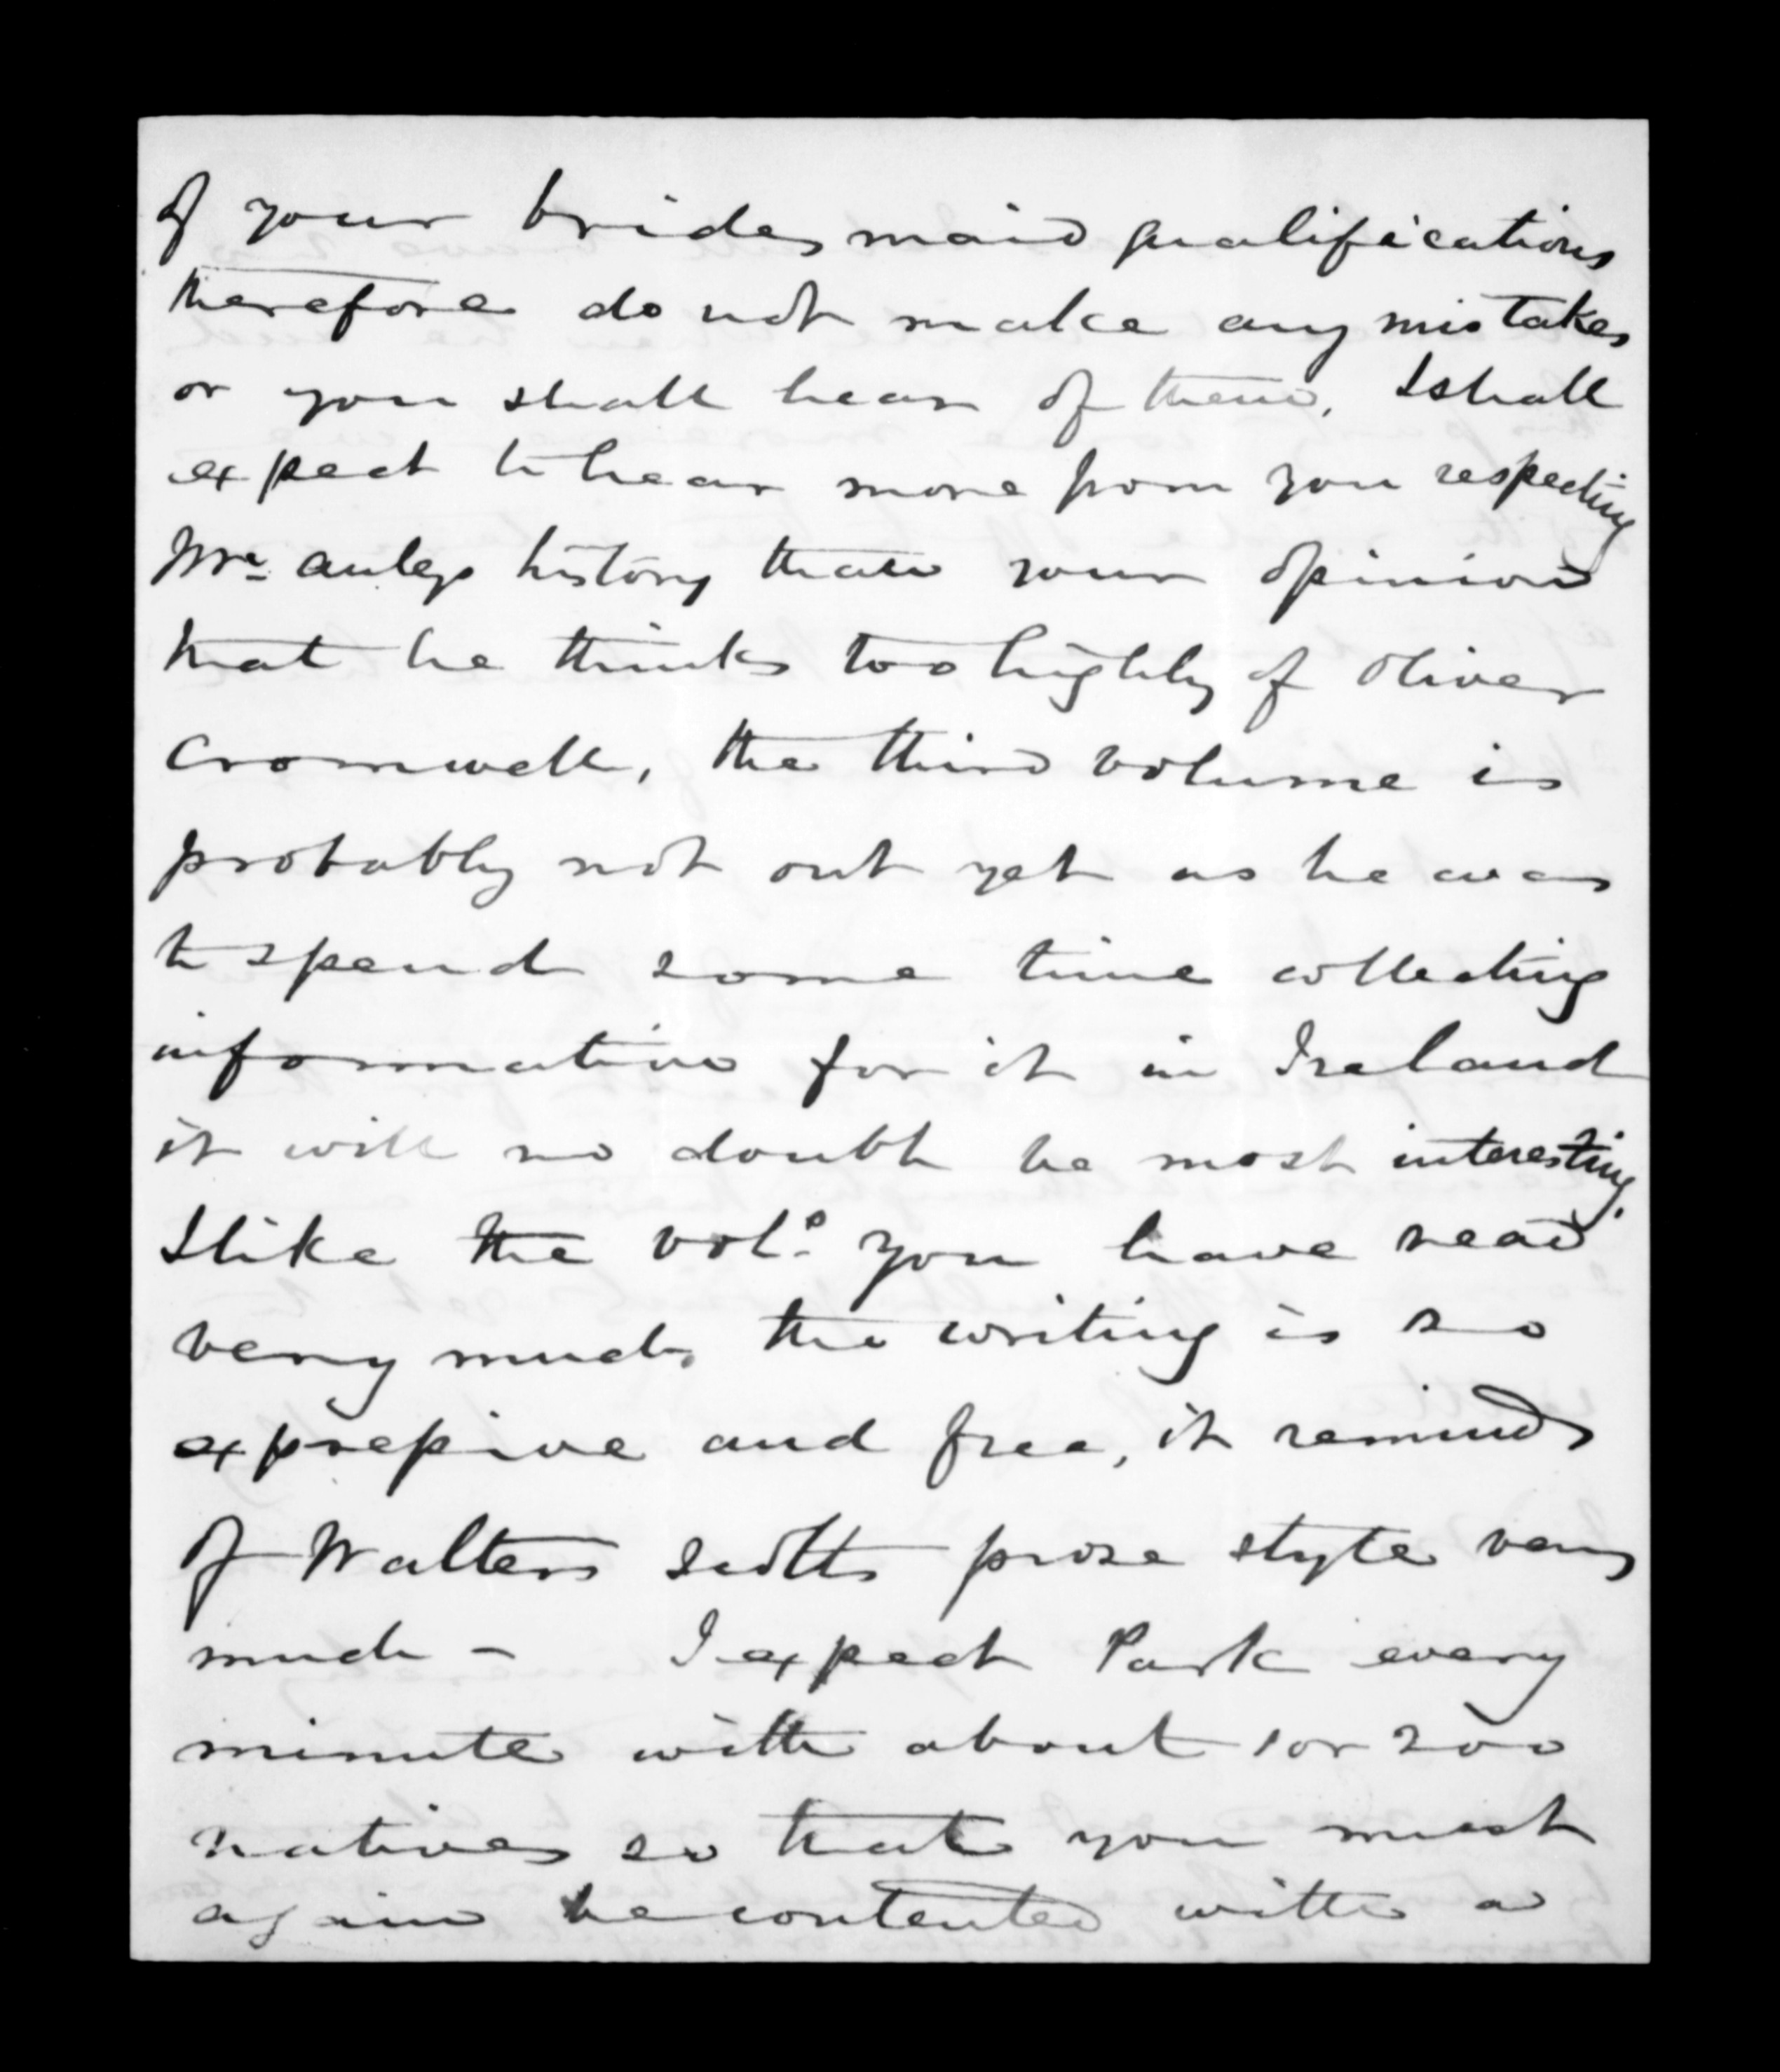 of your brides maid qualifications
therefore do not make any mistakes
or you shall hear of them, I shall
expect to hear more from you respecting
Mc. auleys history than your opinion
that he thinks too highly of Oliver
Cromwell, the third volume is
probably not out yet as he was
to spend some time collecting
information for it in Ireland
it will no doubt be most interesting.
I like the vols. you have read
very much, the writing is so
expressive and free, it reminds
of Walters Scotts prose style very
much - I expect Park every
minute with about 1 or 200
natives so that you must
again be contented with a